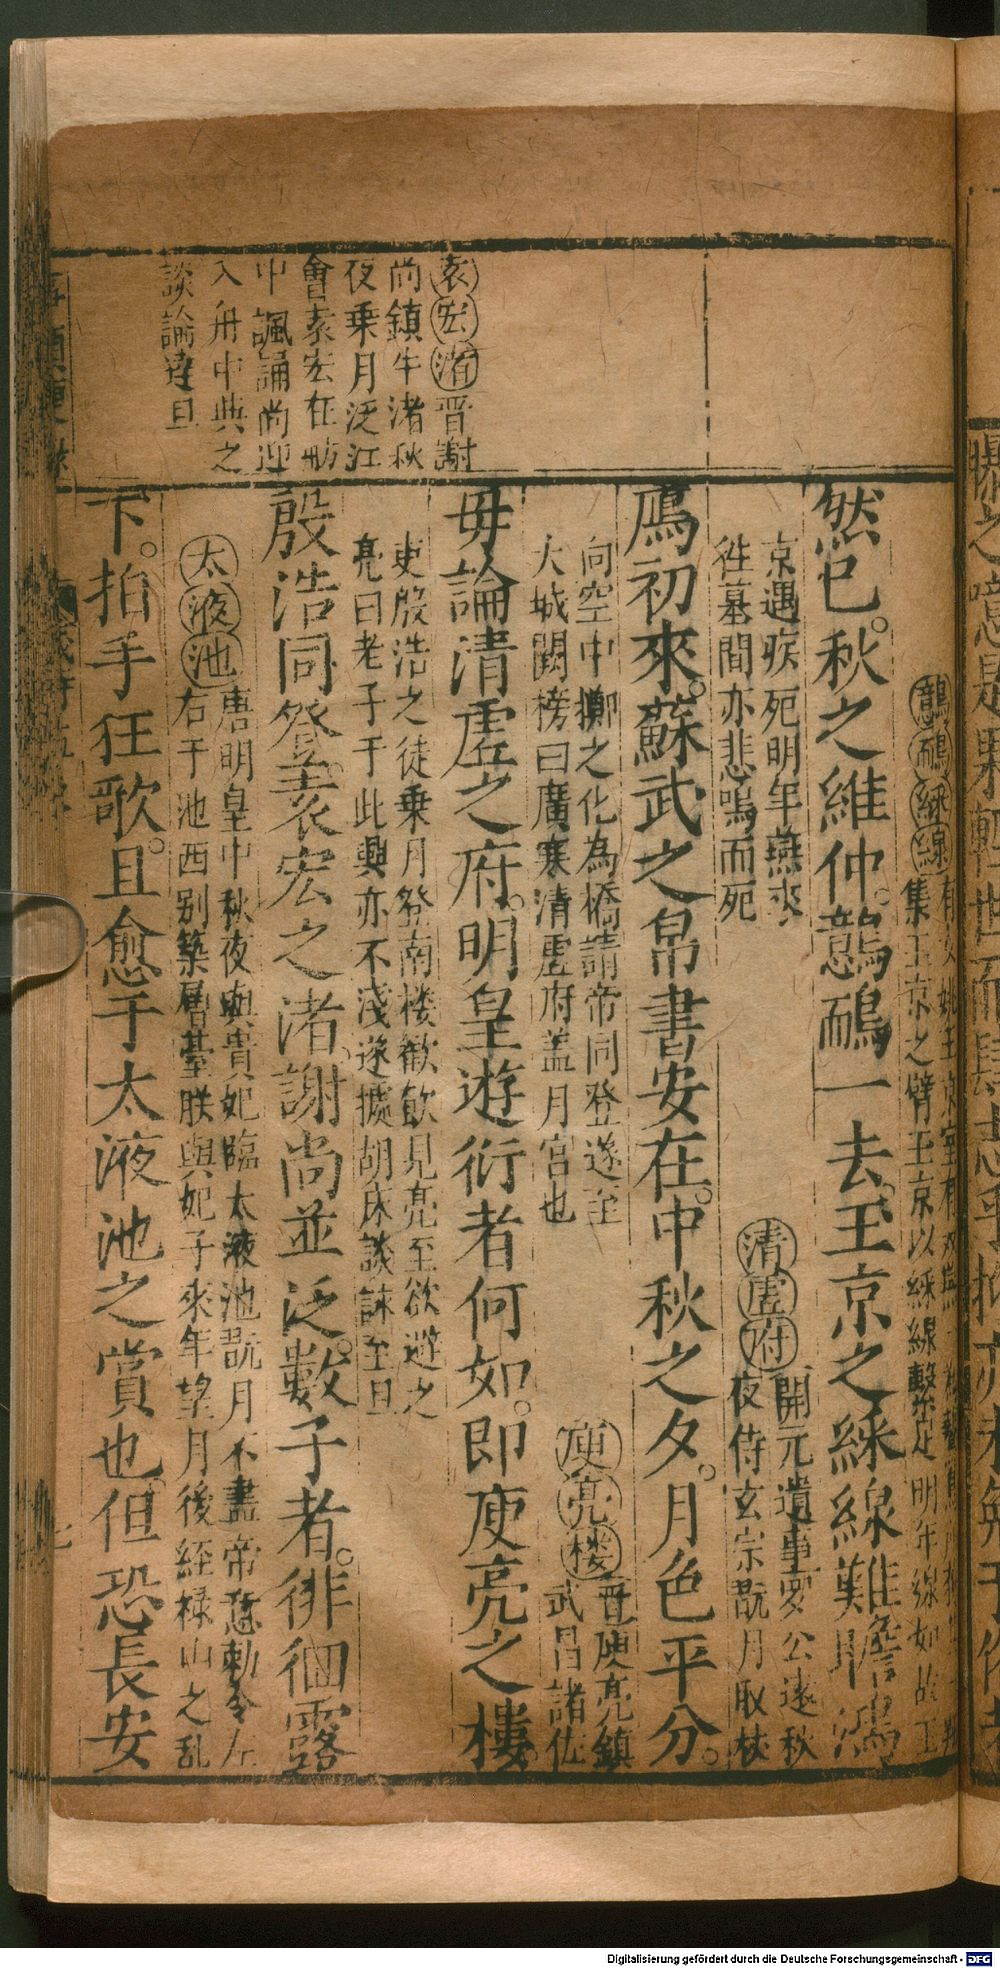 袁宏渚晋謝
尚鎮牛渚秋
夜乗月泛江
會袁宏在舫
中諷誦尚迎
入舟中與之
談論達旦
鷾鴯綵線
集玉京之臂玉京以綵線繫足明年線如故玉
然已。秋之維仲。鷾鴯一去。玉京之綵線難
京遇疾死明年燕來
徃墓間亦悲鳴而死
清虛府開元遺事 公遠秋
夜侍玄宗翫月取杖
鴈初來。蘇武之帛書安在。中秋之夕。月色平分。
向空中擲之化為橋請帝同登遂至
大城闕榜曰廣寒清虛府盖月宮也
庾亮楼晋庾亮鎮
武昌諸佐
毋論清虛之府。明皇遊衍者何如。即庾亮之樓。
吏殷浩之徒乗月登南楼歓飲見亮至欲避之
亮曰老子于此興亦不淺遂據胡床談詠至旦
殷浩同登。袁宏之渚。謝尚並泛。數子者。徘徊露
太液池唐明皇中秋夜與貴妃臨太液池翫月不盡帝 勅令左
右于池西别築層臺朕與妃子來年望月後經禄山之乱
下。拍手狂歌。且愈于太液池之賞也。但恐長安
Digitalisierung gefördert durch die Deutsche Forschungsgemeinschaft - DFG